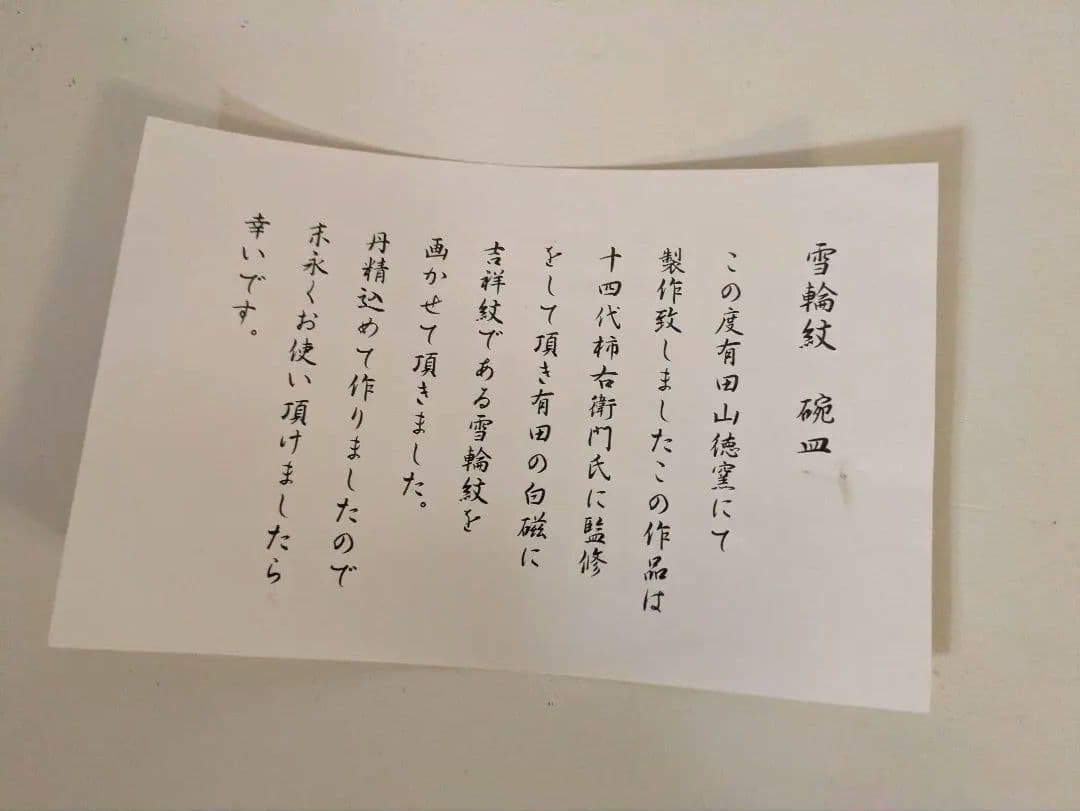 雪輪紋　碗皿
この度有田山徳窯にて
製作致しましたこの作品は
十四代柿右衛門氏に監修
をして頂き有田の白磁に
吉祥紋である雪輪紋を
画かせて頂きました。
丹精込めて作りましたので
末永くお使い頂けましたら
幸いです。